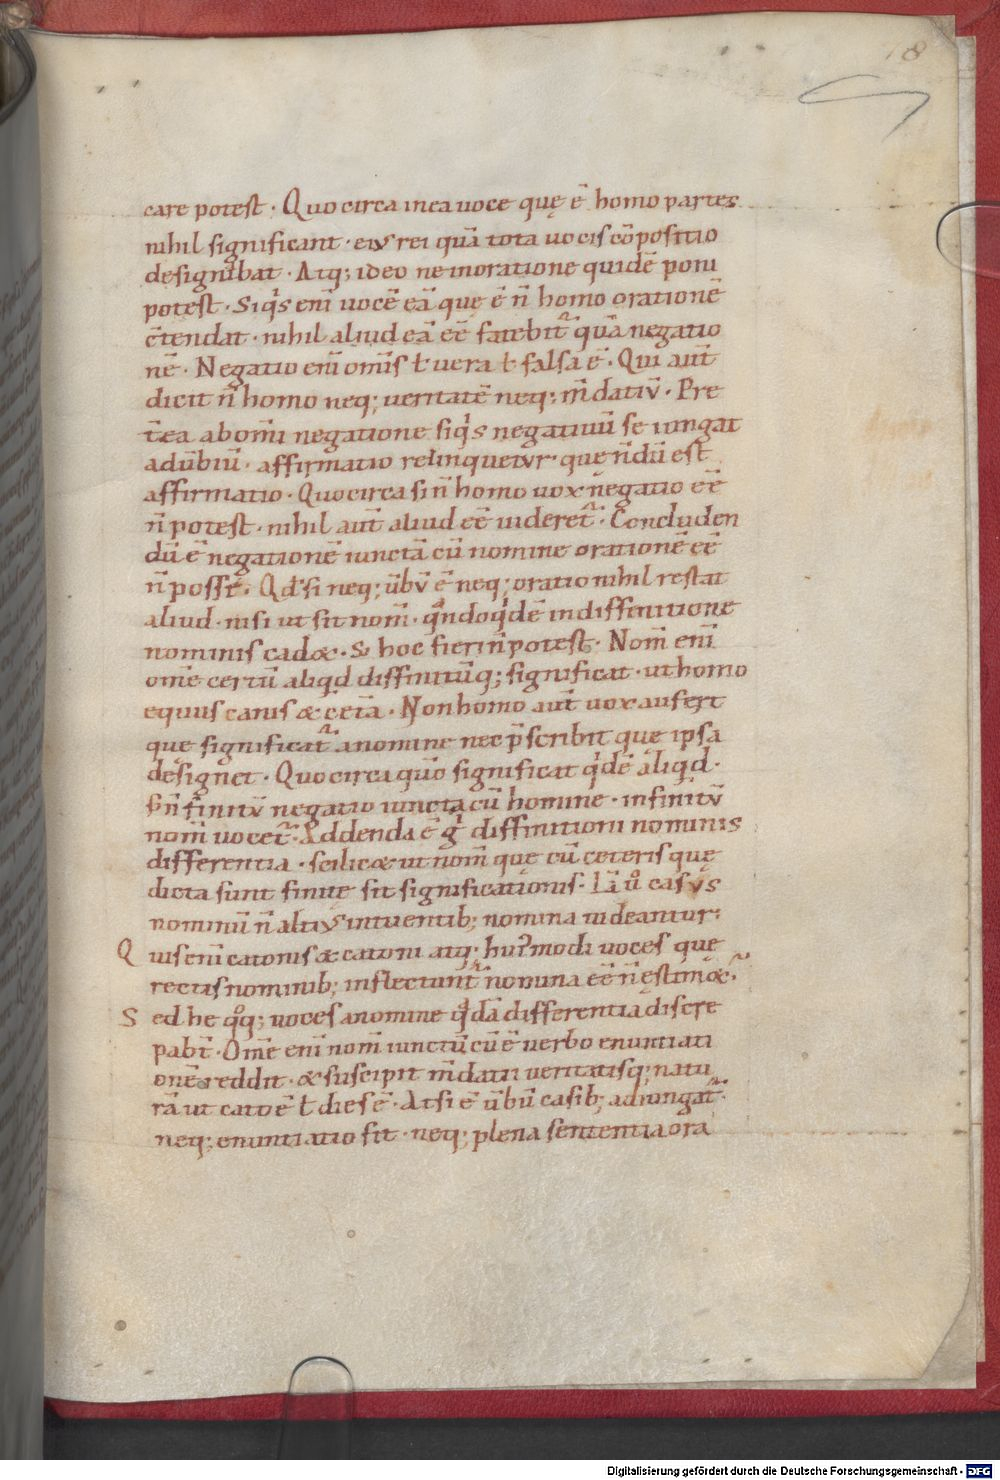 18
care potest · Quo circa in ea uoce quę ē homo partes
nihil significant · eius rei quā tota uocis cōpositio
designabat · Atq; ideo ne in oratione quidē poni
potest · Siqͥs enī uocē eā quę ē n̄ homo orationē
c̄tendat · nihil aliud eā eē fatebit᷑ quā negatio
nē · Negatio enī omīs ƚ uera ƚ falsa ē · Qui aut̄
dicit n̄ homo neq; ueritatē neq; m̄datiū · Pre
t̄ea ab omī negatione siqͥs negatiuū se iungat
aduerbiū · affirmatio relinquetur · que n̄dū est
affirmatio · Quo circa si n̄ homo uox negatio eē
n̄ potest · nihil aut̄ aliud eē uideret᷑ · Concluden
dū ē negationē iunctā cū nomine orationē eē
n̄ posse · Qd si neq; ūbū ē neq; oratio nihil restat
aliud · nisi ut sit nom̄ · qn̄doqͥdē in diffinitione
nominis cadæ · & hoc fieri n̄ potest · Nom̄ enī
ome certū aliqͥd diffinitūq; significat · ut homo
equus canis & cet̄a · Non homo aut̄ uox aufert
quę significat᷑ a nomine nec p̄scribit quę ipsa
designet · Quo circa quō significat qͥdē aliqͥd ·
s; n̄ finitū negatio iuncta cū homine · infinitū
nom̄ uocet᷑ · Addenda ē gͥ diffinitioni nominis
differentia · scilicæ ut nom̄ quę cū ceteris quę
dicta sunt finitę sit significationis · Iā uͦ casus
nominū n̄ altius intuentib; nomina uideantur ·
Quis enī catonis & catoni atq; hui᷒modi uoces quę
rectis nominib; inflectunt᷑ nomina eē n̄ ęstimæ ·
Sed he qͦq; uoces a nomine qͣdā differentia discre
pabt̄ · Ome enī nom̄ iunctū cū ē uerbo enuntiati
onē reddit · & suscipit m̄datii ueritatisq; natu
rā ut cato ē ƚ dies ē · At si ē ūbū casib; adiungat᷑ ·
neq; enuntiatio fit · neq; plena sententia ora
Digitalisierung gefördert durch die Deutsche Forschungsgemeinschaft - DFG